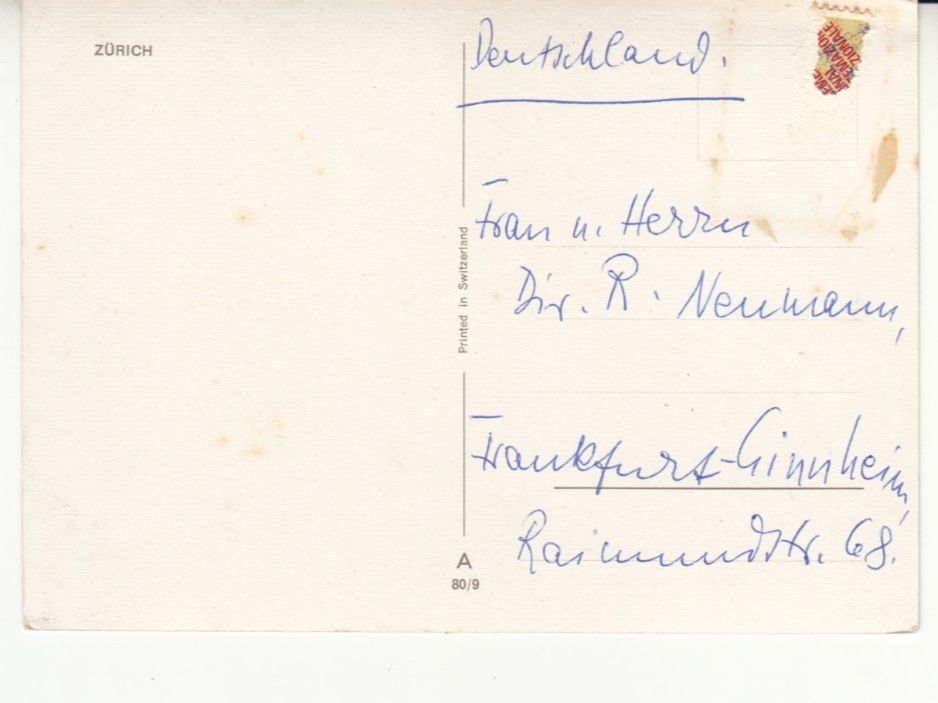 ZÜRICH
Deutschland.
Frau u. Herrn
Dir. R. Neumann,
Frankfurt-Ginnheim,
Raimundstr. 68.
Printed in Switzerland
A
80/9
ZIONALE